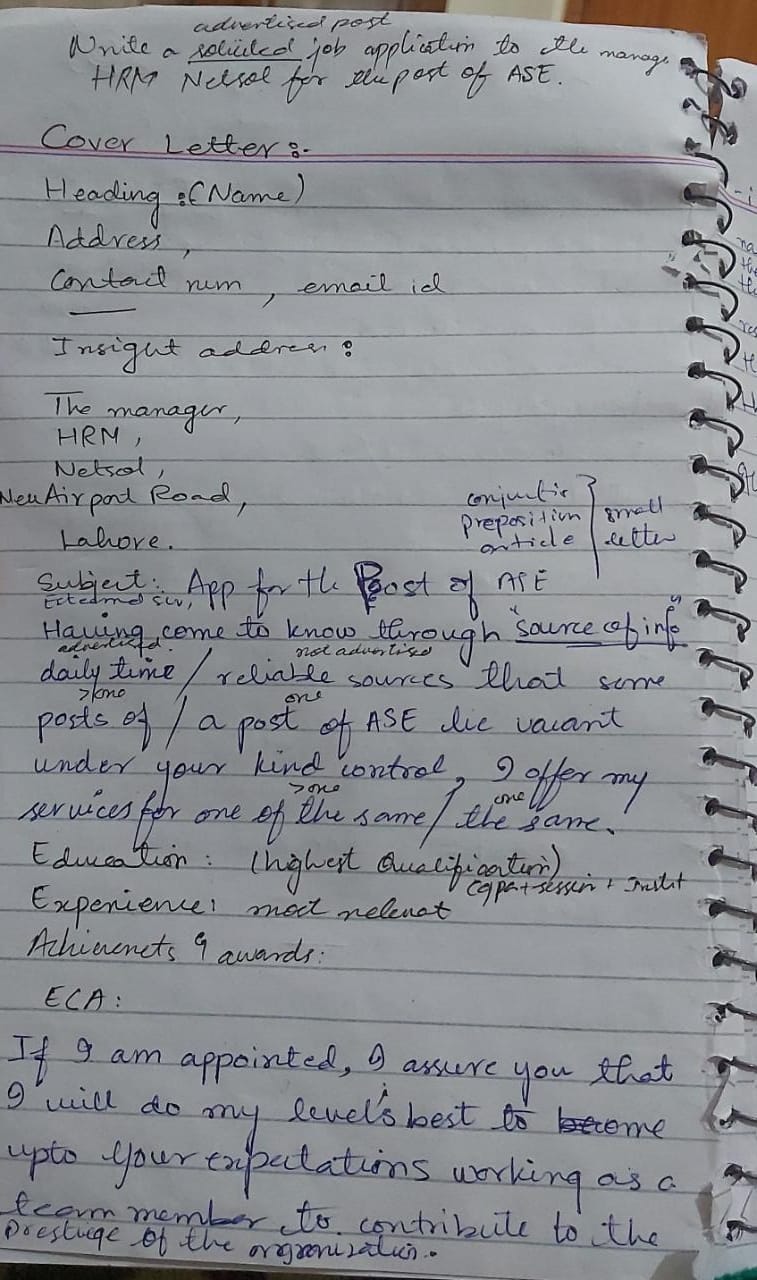 advertised post
Write a solicited job application to the manage
HRM Netsol for the post of ASE.
Cover Letter :-
Heading : (Name)
Address,
Contact num, email id
Insight address :
The manager,
HRM,
Netsol,
New Airport Road,
Lahore.
conjunctio
preposition
article
small
letter
Subject: App for the Post of ASE
Esteemed Sir,
Having come to know through "source of info"
advertised not advertised
daily time / reliable sources that some
>one one
posts of / a post of ASE lie vacant
under your kind control, I offer my
>one one
services for one of the same / the same.
Education : (highest Qualification)
cgpa + session + Instit
Experience: most relevat
Achievnets & awards:
ECA:
If I am appointed, I assure you that
I will do my level's best to come
upto your expectations working as a
team member to contribute to the
prestige of the organization.